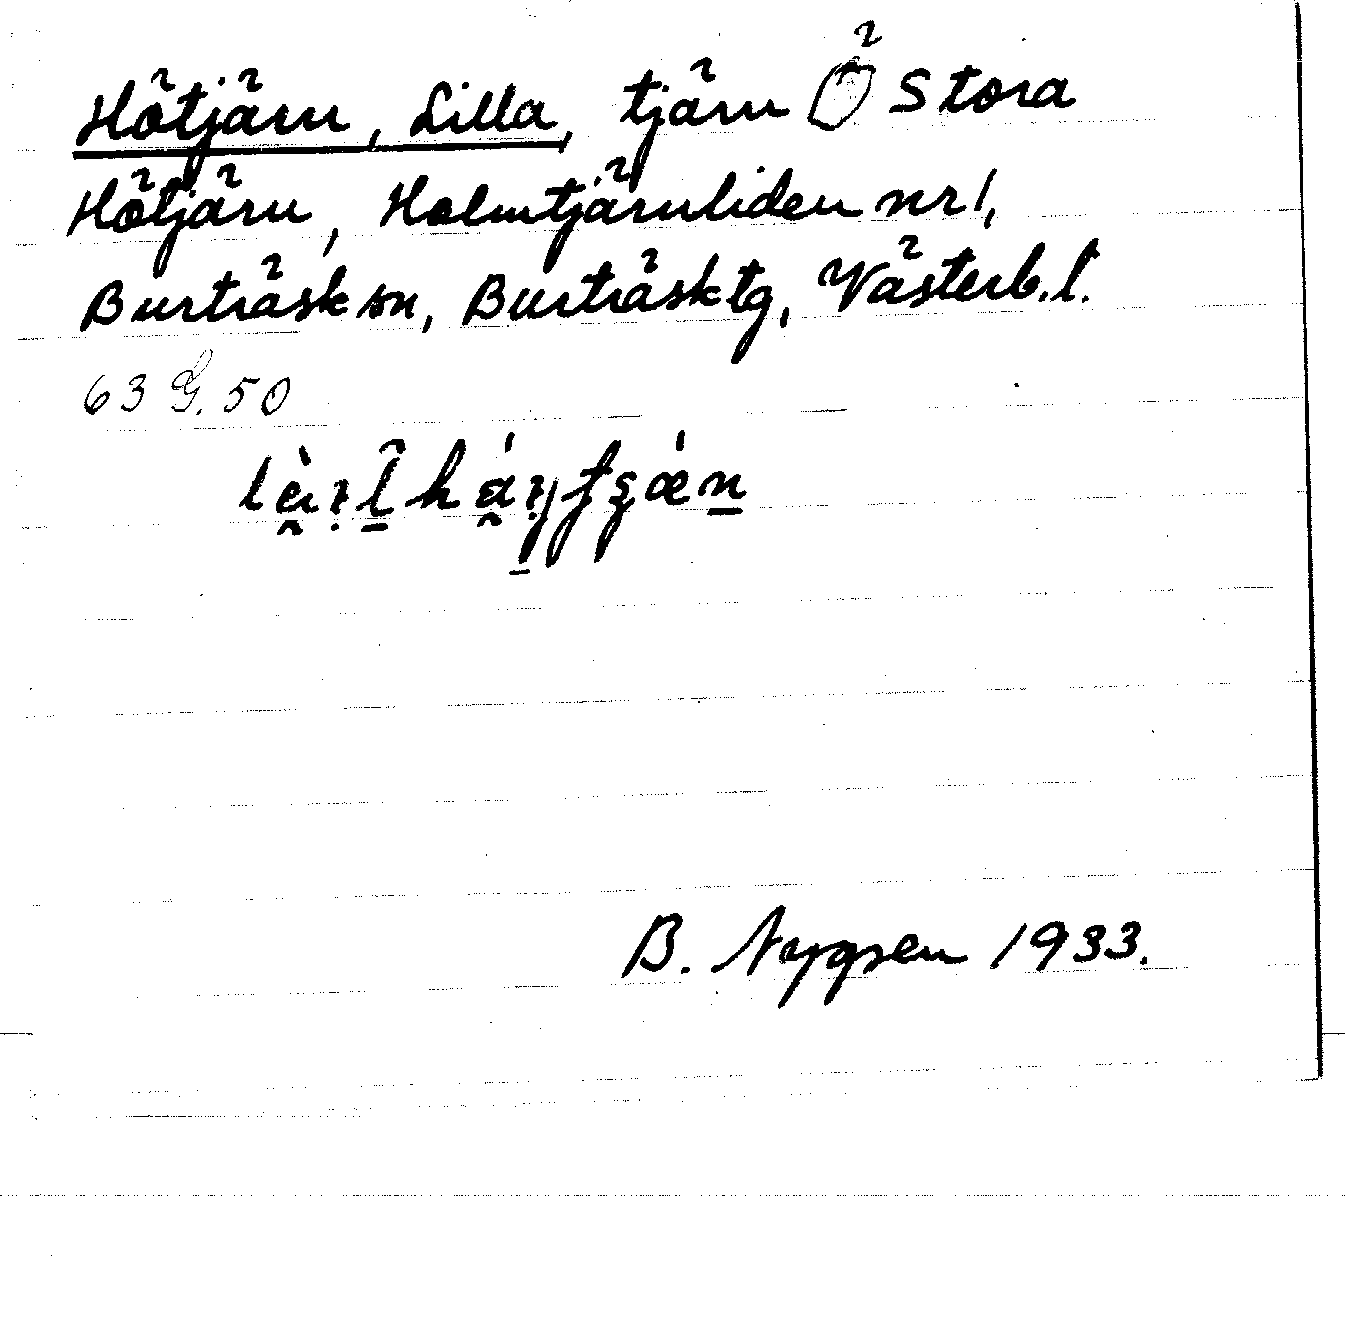 Hötjärn, Lilla, tjärn Ö Stora
Hötjärn, Holmtjärnliden nr 1,
Burträsk sn, Burträsk tg, Västerb. l.
63 G. 50
B. Nygren 1933.